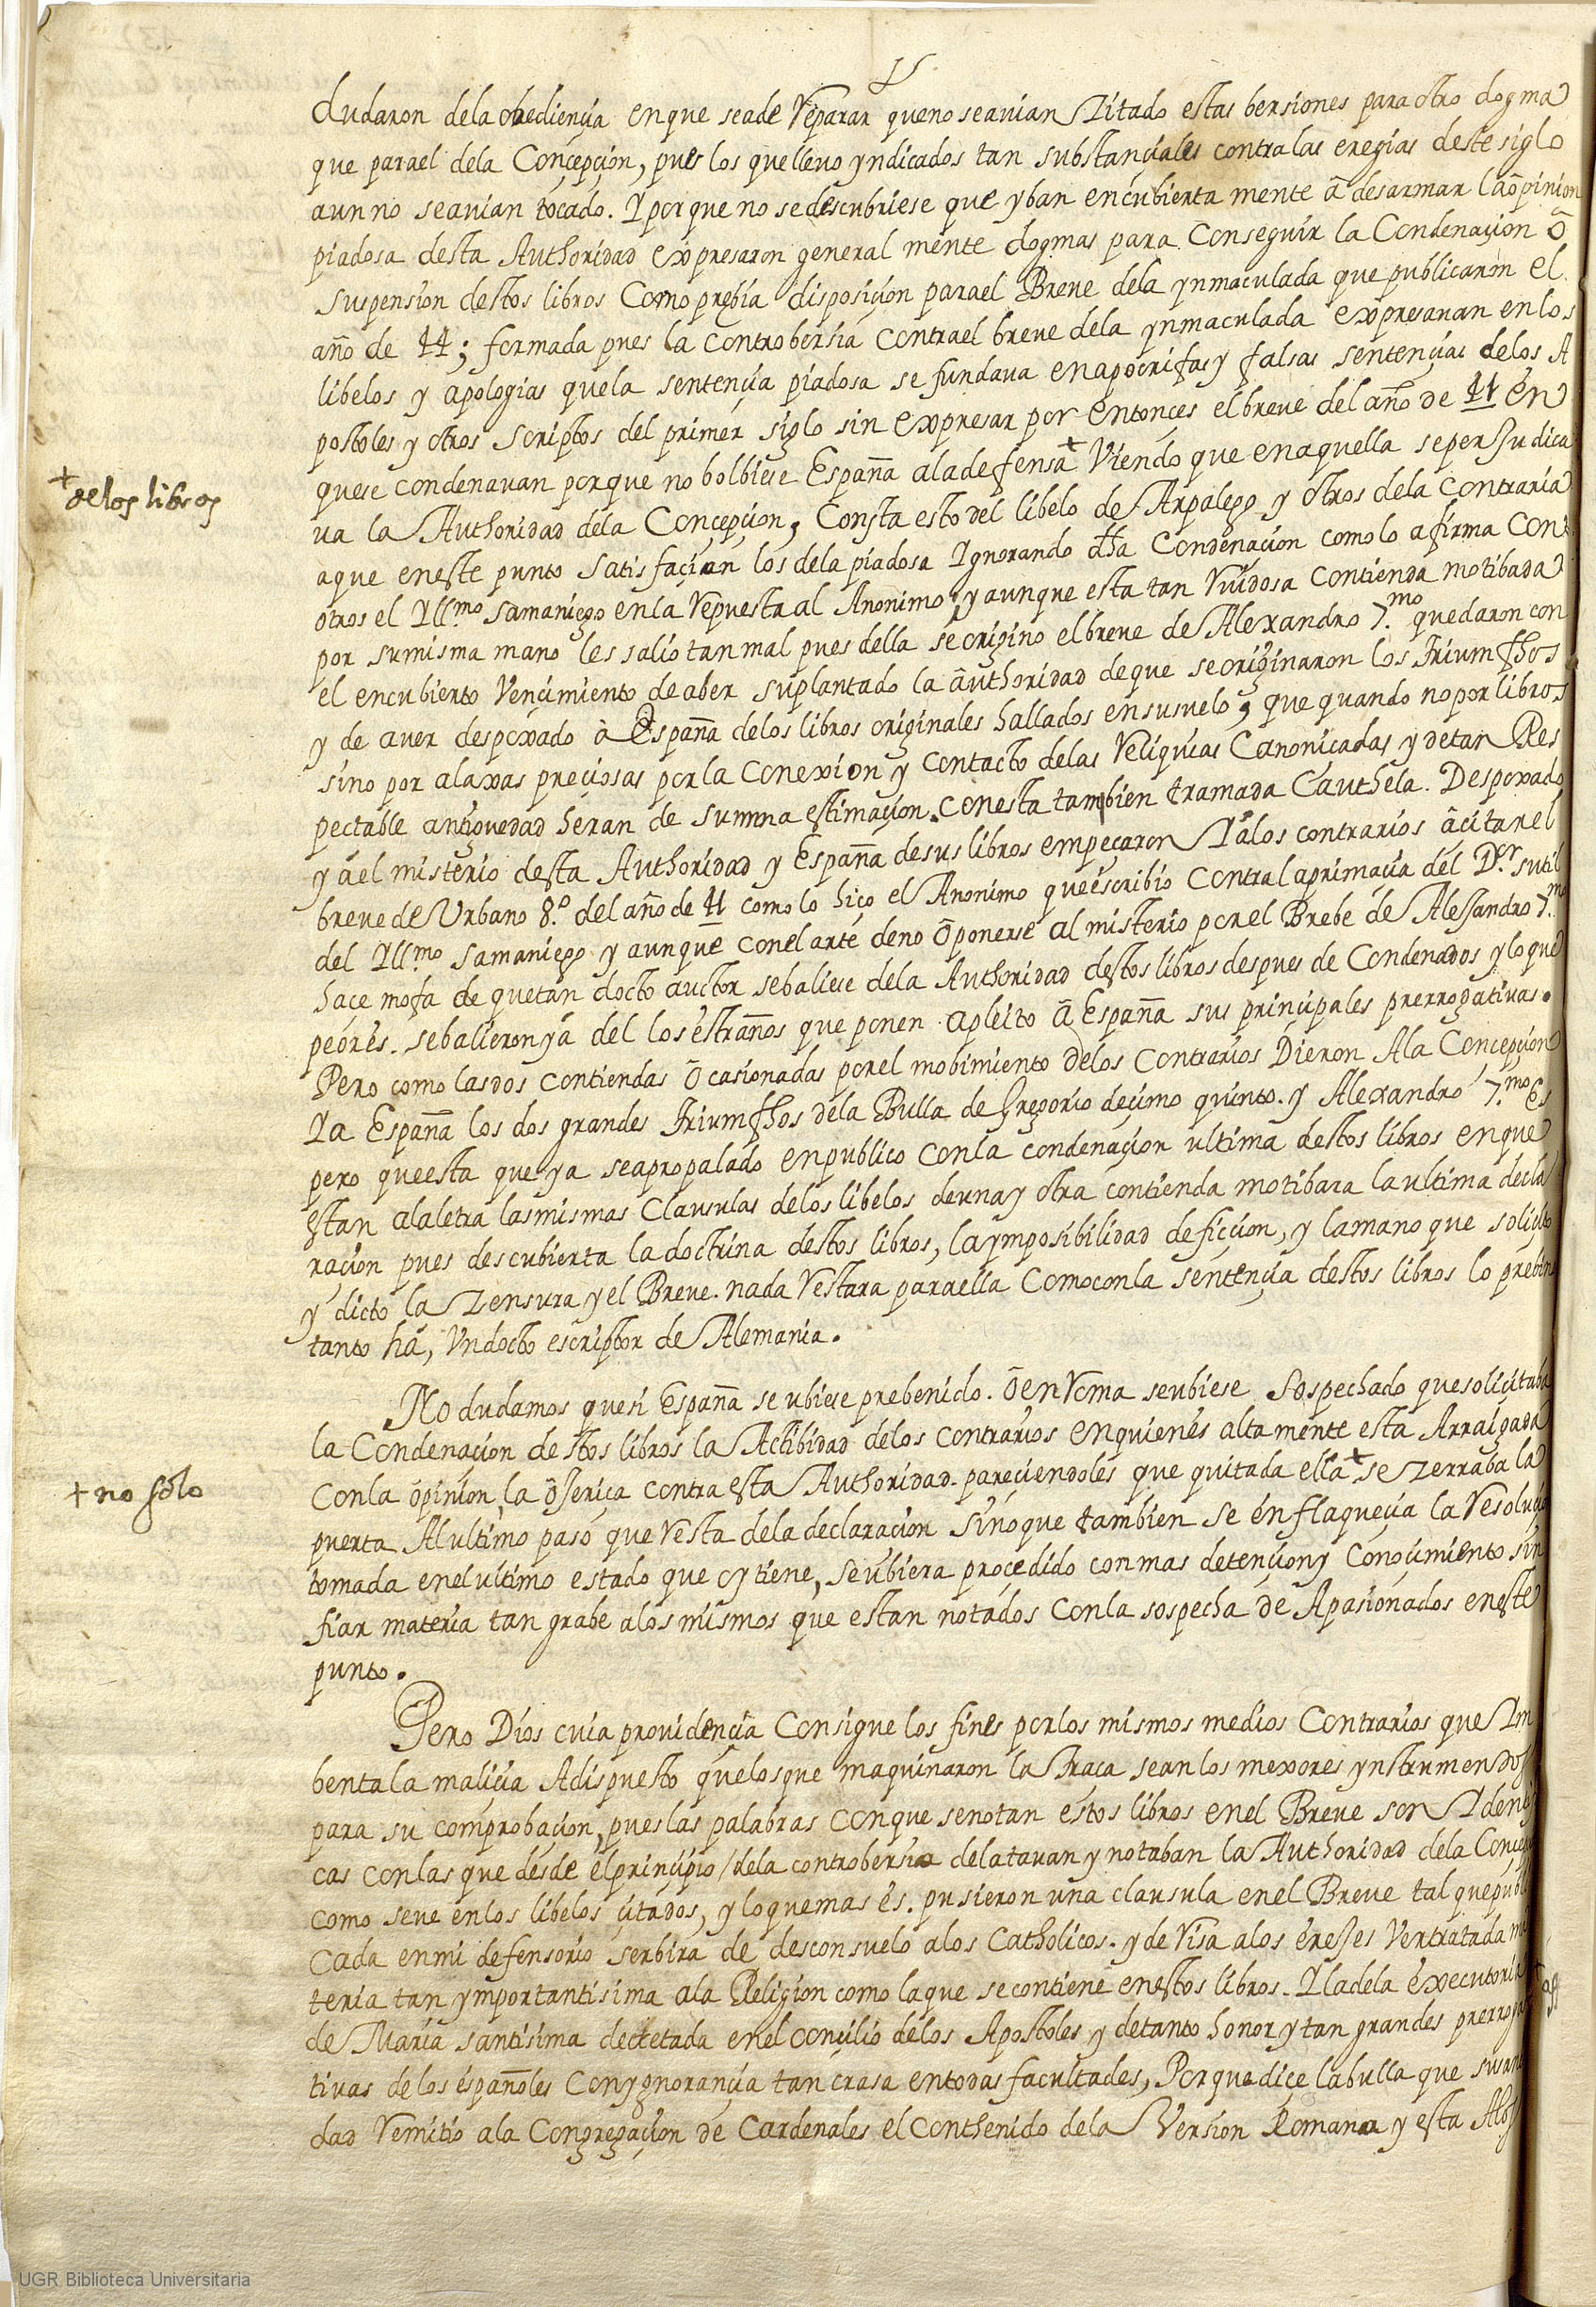 dudaron dela obediençia enque seade Reparar queno seavian Zitado estas bersiones para otro dogma
que parael dela Conçepçion, pues los quellevo yndicados tan substançiales contralas eregias deste siglo
aun no seavian tocado. Y porque no sedescubriese que yban encubierta mente â desarmar la ôpinion
piadosa desta Authoridad expresaron general mente dogmas para Conseguir la Condenaçion ô
suspension destos libros Como prebia disposiçion parael Breve dela ynmaculada que publicaron el
año de 44; formada pues la controbersia contrael breve dela ynmaculada expresavan enlos
libelos y apologias quela sentençia piadosa se fundava enapocrifas y falsas sentençias delos A
postoles y otros scriptos del primer siglo sin expresar por entonces elbreve del año de 41 en
quese condenavan porque no bolbiese España aladefensa + Viendo que enaquella seperjudica
+
delos libros
va la Authoridad dela Conçepçion, Consta esto del libelo de Arpalego y otros dela contraria
aque eneste punto satisfaçian los dela piadosa Ygnorando dha Condenaçion como lo afirma Con
otros el Yll.mo Samaniego en la Repuesta al Anonimo; y aunque esta tan Ruidosa contienda motibada
por sumisma mano les salio tan mal pues della se origino elbreve de Alexandro 7.mo quedaron con
el encubierto Vençimiento de aber suplantado la âuthoridad deque seoriginaron los triumphos
y de aver despoxado â España delos libros originales hallados ensusuelo, que quando no por libros
sino por alaxas preçiosas por la Conexion y contacto delas Reliquias Canonicadas y detan Res
pectable antiguedad heran de summa estimaçion. Conesta tambien tramada Cauthela. Despoxado
ya el misterio desta Authoridad y España desus libros empeçaron Ya los contrarios âçitar el
breve de Urbano 8.º del año de 41 como lo hiço el Anonimo que escribio contra laprimaçia del D.or sutil
del Yll.mo Samaniego y aunque conel arte deno ôponerse al misterio por el Brebe de Alessandro 7.mo
hace mofa de quetan docto auctor sebaliese dela Authoridad destos libros despues de Condenados y lo que
peor es. sebalieron ya del los estraños que ponen apleito â España sus prinçipales prerrogativas.
Pero como las dos contiendas ôcasionadas porel mobimiento delos Contrarios Dieron Ala Concepçion
Ya España los dos grandes triumphos dela Bulla de Gregorio deçimo quinto. y Alexandro 7.mo Es
pero queesta que ya seapropalado enpublico conla condenaçion ultima destos libros enque
estan alaletra lasmismas Clausulas delos libelos deuna y otra contienda motibara laultima decla
raçion pues descubierta ladoctrina destos libros, laymposibilidad de ficçion, y lamano que soliçito
y dicto la Zensura y el Breve. nada Restara paraella Comoconla sentençia destos libros lo prebino
tanto hâ, Undocto escriptor de Alemania.
No dudamos que si España se ubiese prebenido. ô en Roma se ubiese sospechado que soliçitaba
la Condenaçion destos libros la Actibidad delos contrarios enquienes altamente esta Arraigada
Conla ôpinion, la ôjeriça contra esta Authoridad. pareçiendoles que quitada ella + se zerraba la
+ no solo
puerta Alultimo paso que Resta dela declaracion sino que tambien se enflaqueçia la Resoluçio
tomada enelultimo estado que oy tiene, se ubiera procedido con mas detençion y Conoçimiento sin
fiar materia tan grabe alos mismos que estan notados Conla sospecha de Apasionados eneste
punto.
Pero Dios cuia providençia Consigue los fines porlos mismos medios Contrarios que Im
bentala maliçia Adispuesto quelosque maquinaron la Traça sean los mexores ynstrumendos
para su comprobaçion, pues las palabras conque senotan estos libros enel Breve son Ydenti
cas conlas que desde elprinçipio / dela controbersia delatavan y notaban la Authoridad dela Conçep
como seve enlos libelos çitados, y loquemas es. pusieron una clausula enel Breve tal quepubli
cada enmi defensorio serbira de desconsuelo alos Catholicos. y de Risa alos erejes Ver tratada ma
teria tan ymportantisima ala Religion como laque secontiene enestos libros. Yladela executoria
de Maria santisima decretada enel conçilio delos Apostoles y detanto honor y tan grandes prerroga
tivas delos españoles Conygnorançia tan crasa entodas facultades, Porque dice labulla que susanti
dad Remitio ala Congregaçion de Cardenales el Conthenido dela Version Romana y esta Abs